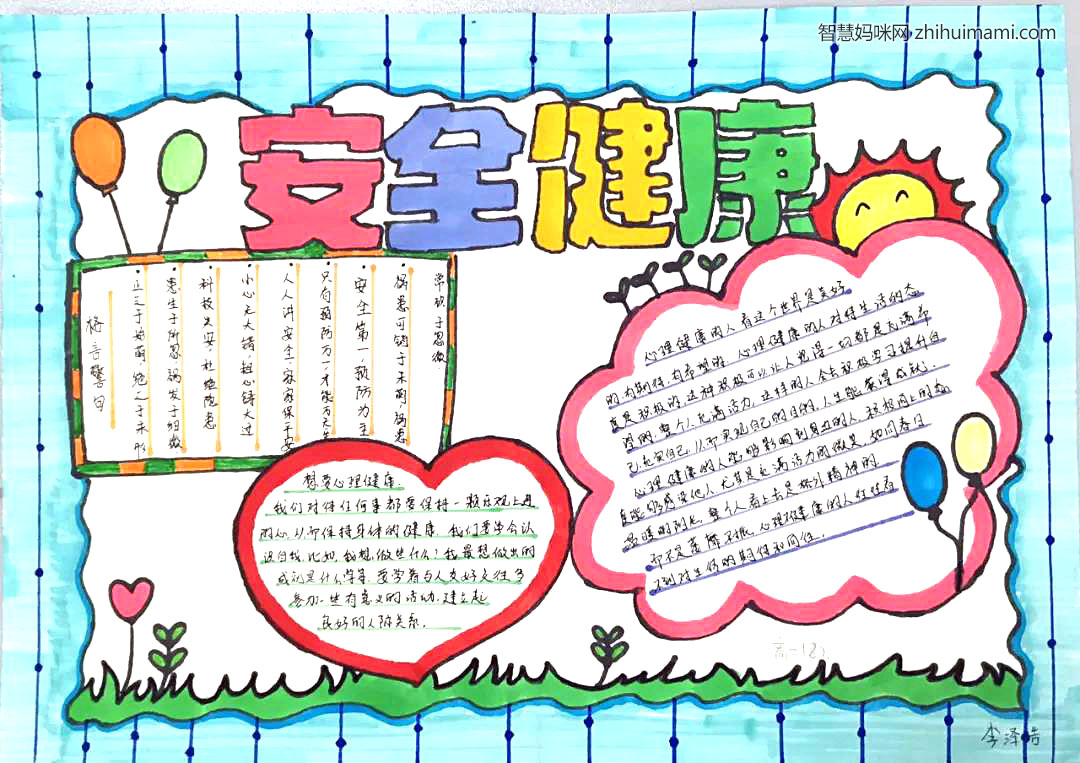 智慧妈咪网 zhihuimami.com
安全健康
格言警句
于始萌，绝之于未形
患生于所忽，祸发于细微
科技 安，杜绝隐患
小心无大错，粗心铸大过
人人讲安全，家家保平安
只有预防万一，才能万无
安全第一，预防为主
隐患可销于未萌，祸患
常 于忽微
心理健康的人看这个世界是美好
的，有期待，有希望的。心理健康的人对待生活的态
度是积极的，这种积极可以让人觉得一切都是充满希
望的，整个人充满活力，这样的人会去积极学习提升自
己，充实自己，从而实现自己的目的，人生能 获得成就。
心理健康的人能够影响到身边的人，积极向上的态
度能够感染他人，尤其是充满活力的微笑，如同春日
温暖的阳光，整个人看上去是格外精神的
而不是萎靡不振，心理不健康的人往往看
不到对生活的期待和向往。
想要心理健康.
我们对待任何事都要保持一颗乐观上进
的心,从而保持身体的健康.我们要学会认
识自我,比如,我想做些什么?我最想做出的
成就是什么等等.要学着与人友好交往,多
参加一些有意义的活动.建立起
良好的人际关系.
高一(2)
李泽浩